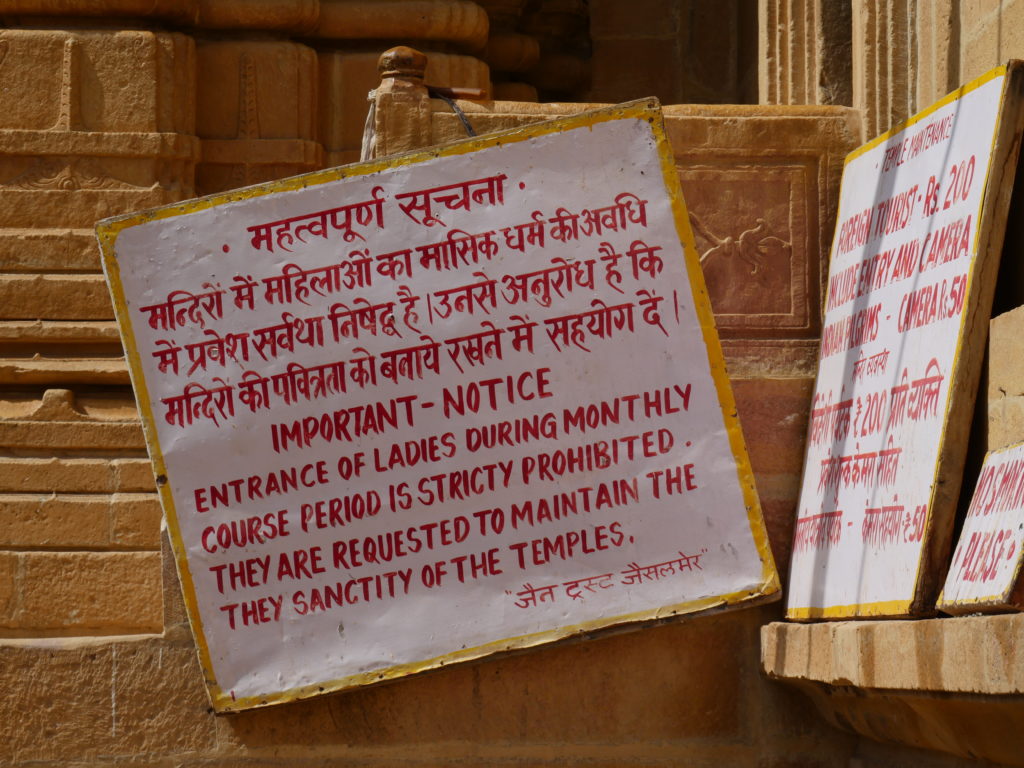 · महत्वपूर्ण सूचना ·
मन्दिरों में महिलाओं का मासिक धर्म की अवधि
में प्रवेश सर्वथा निषेद्व है । उनसे अनुरोध है कि
मन्दिरों की पवित्रता को बनाये रखने में सहयोग दें ।
IMPORTANT - NOTICE
ENTRANCE OF LADIES DURING MONTHLY
COURSE PERIOD IS STRICTY PROHIBITED .
THEY ARE REQUESTED TO MAINTAIN THE
THEY SANCTITY OF THE TEMPLES.
"जैन ट्रस्ट जैसलमेर"
· TEMPLE MAINTENANCE
FOREIGN TOURIST - RS. 200
INCLUDE ENTRY AND CAMERA
PILGRIMS - CAMERA Rs 50
₹ 200 प्रति व्यक्ति
सहित
₹ 50
PLEASE